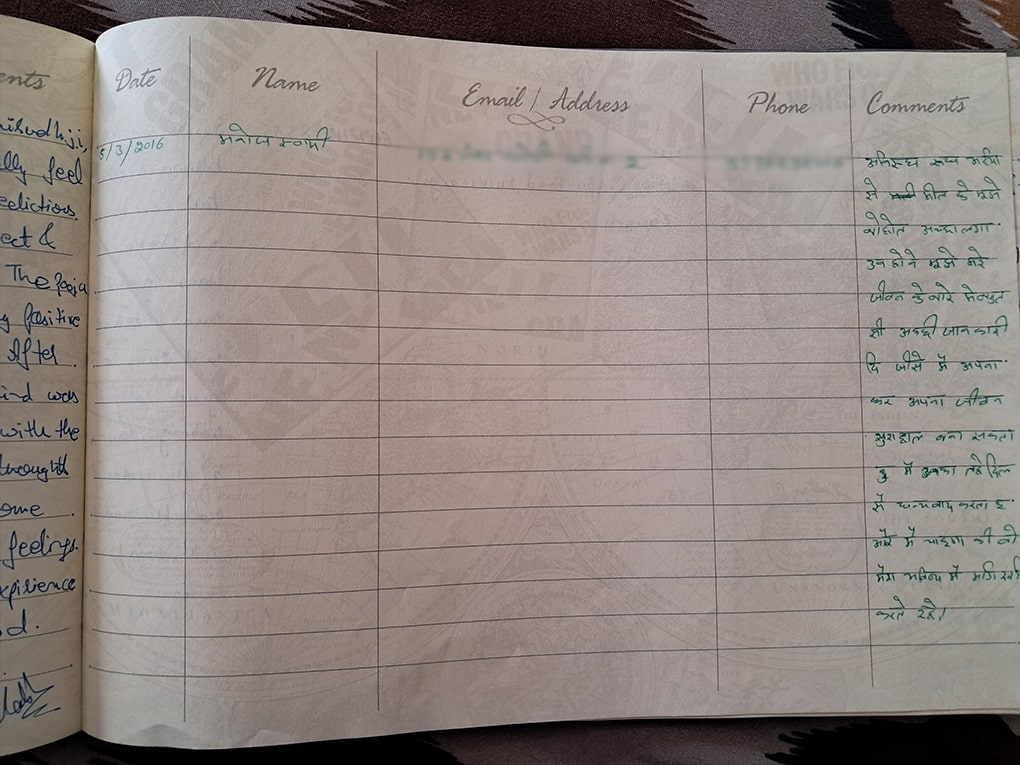 ents
Date Name Email / Address Phone Comments
lly feel
edictions.
ect &
The Pooja
g positive
After
ind was
with the
throught
ome
feelings.
xpirience
d.
5/3/2016 मनोज स्वामी
अनिरूध
से मील के मुझे
बोहोत अच्छा लगा
उन होने मुझे मेरे
जीवन के बारे मे बहुत
सी अच्छी जानकारी
दि जीसे मैं अपना
कर अपना जीवन
खुशहाल बना सकता
हु मैं उनका तहे दिल
से धन्यवाद करता हु
और मैं चाहुगा की वो
मेरा भविष्य मैं मार्ग दर्शन
करते रहे।